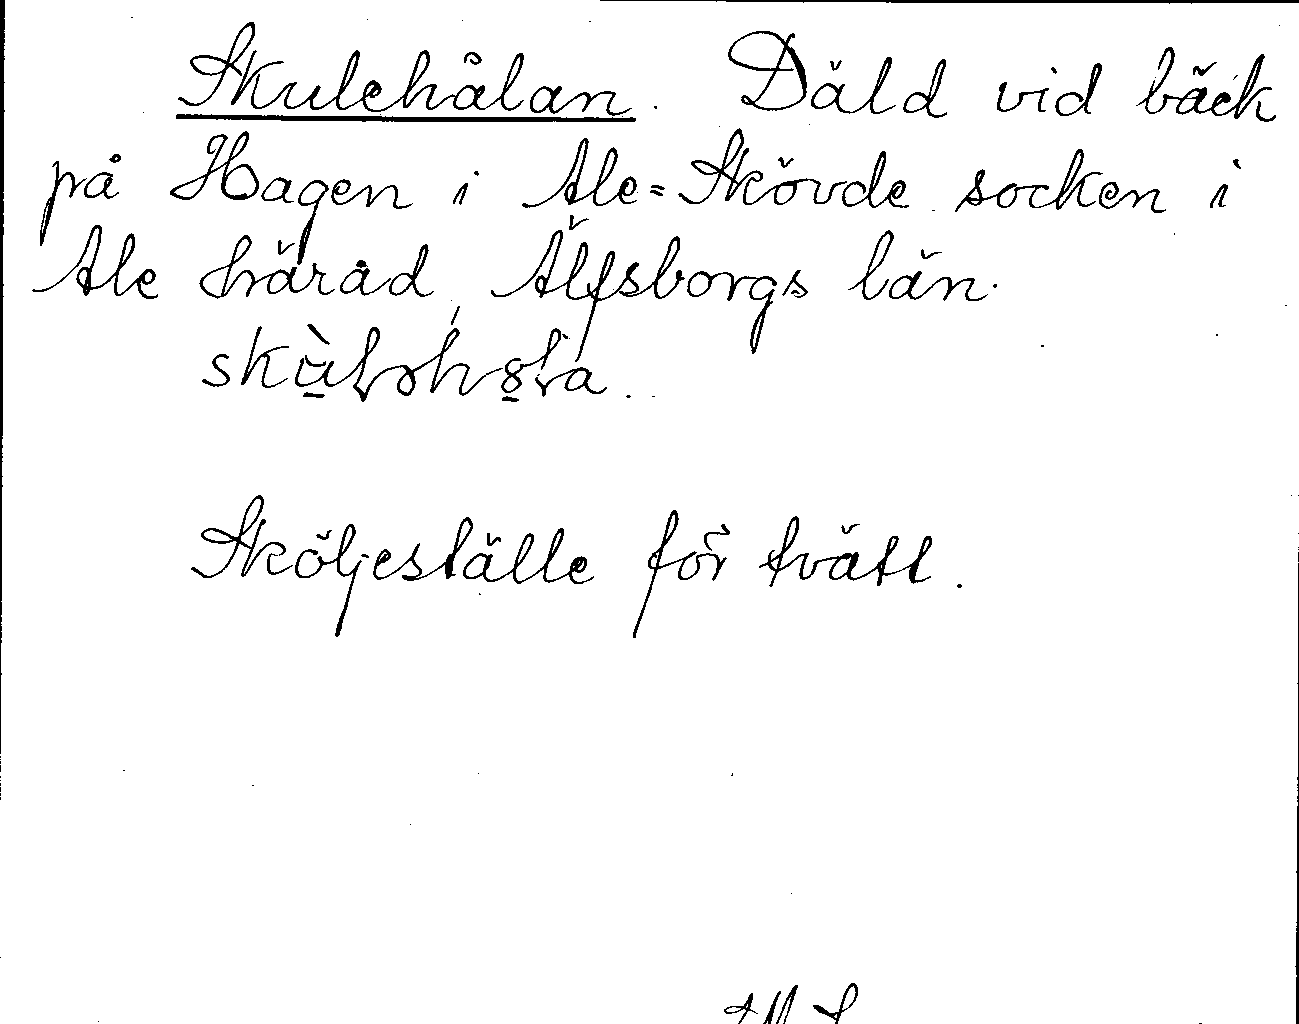 Skulehålan. Däld vid bäck
på Hagen i Ale=Skövde socken i
Ale härad, Älfsborgs län.
Sköljeställe för tvätt.